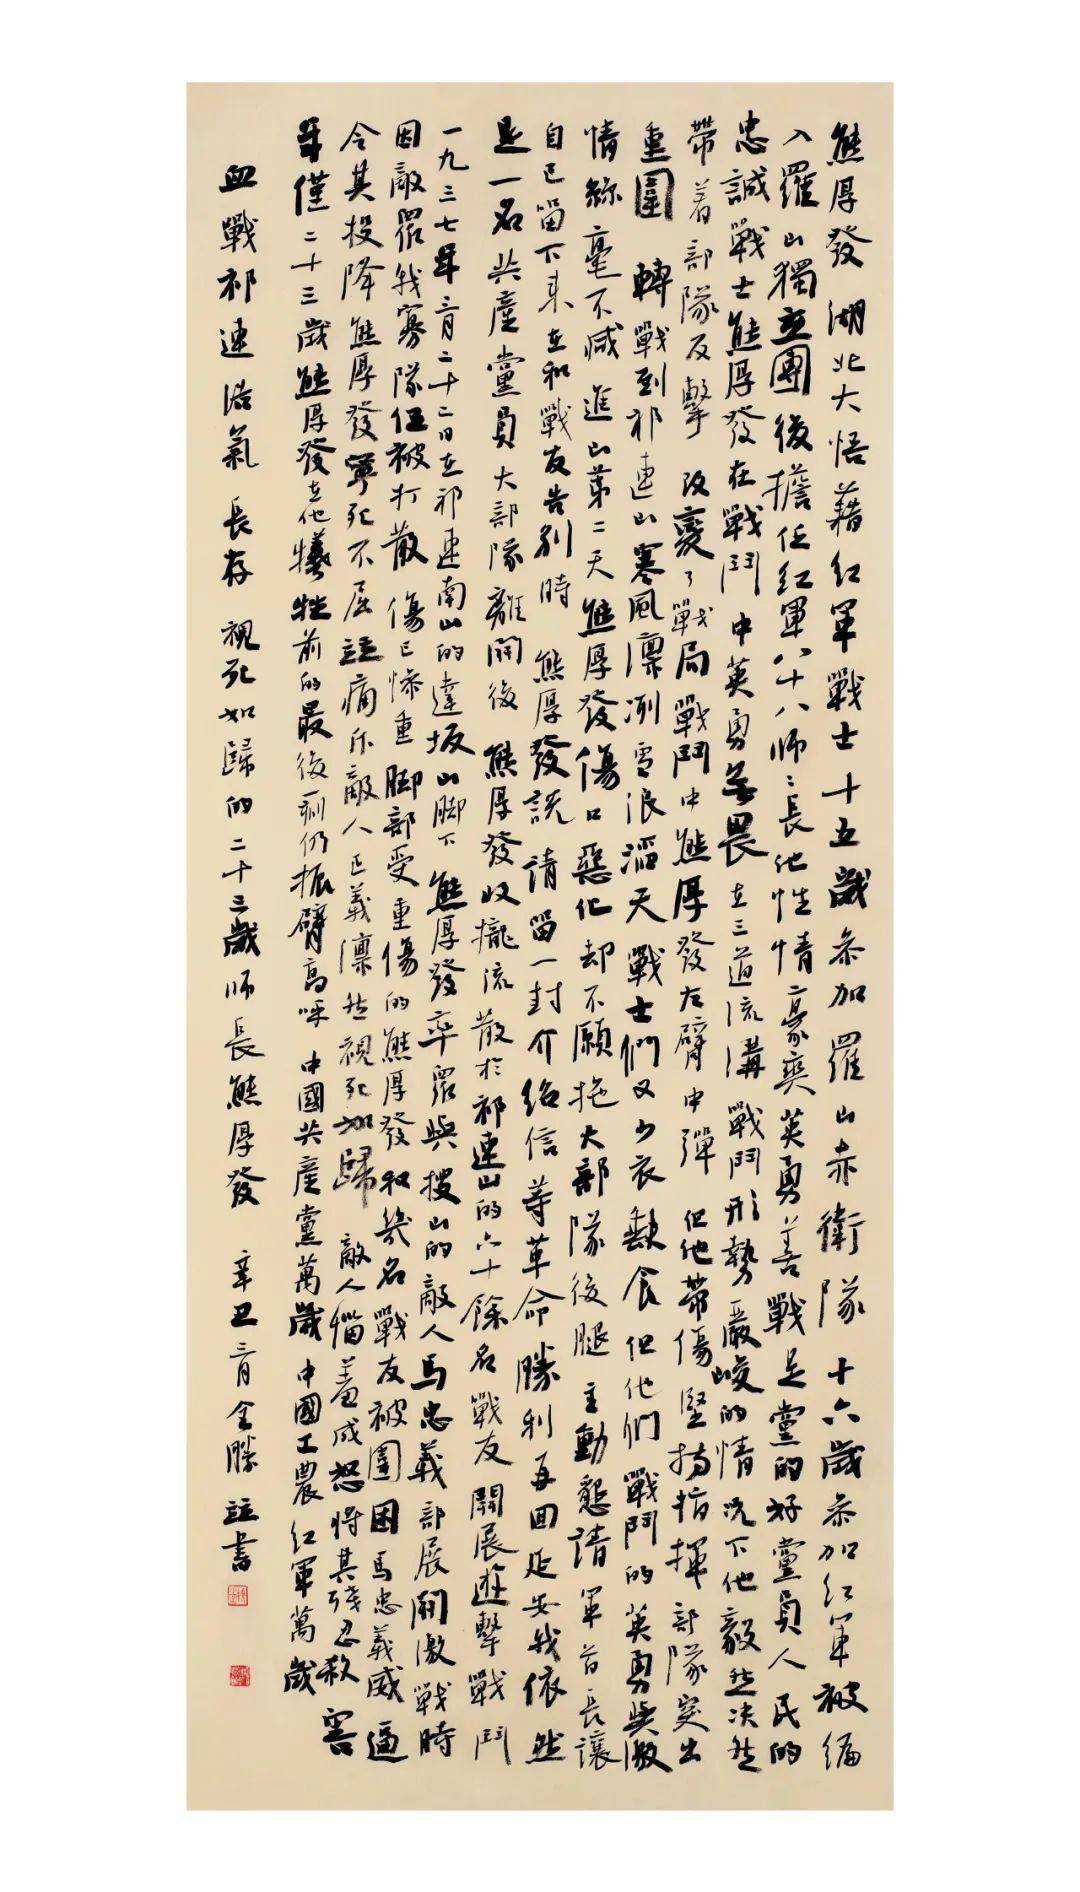 熊厚發 湖北大悟藉紅軍戰士十五歲參加羅山赤衛隊 十六歲參加紅軍被编
入羅山獨立團 後擔任紅軍八十八師師長他性情豪爽英勇善戰是黨的好黨員人民的
忠誠戰士熊厚發在戰鬥中英勇無畏在三道流溝戰鬥形勢嚴峻的情況下他毅然决然
帶着部隊反擊 改變了戰局戰鬥中熊厚發左臂中彈 但他帶傷堅持指揮部隊突出
重圍 轉戰到祁連山寒風凛冽雪浪滔天戰士們又少衣缺食但他們戰鬥的英勇與激
情絲毫不减 進山第二天熊厚發傷口惡化却不願拖大部隊後腿 主動懇請軍首長讓
自己留下來在和戰友告别時 熊厚發説 請留一封介紹信等革命勝利再回延安我依然
是一名共產黨員大部隊離開後 熊厚發收攏流散於祁連山的六十餘名戰友開展遊擊戰鬥
一九三七年三月二十二日在祁連南山的達坂山脚下 熊厚發率眾與搜山的敵人馬忠義部展開激戰時
因敵眾我寡隊伍被打散 傷已慘重脚部受重傷的熊厚發和幾名戰友被圍困馬忠義威逼
令其投降熊厚發寧死不屈 痛斥敵人正義凛然視死如歸 敵人惱羞成怒將其殘忍殺害
年僅二十三歲熊厚發在他犧牲前的最後一刻仍振臂高呼 中國共產黨萬歲 中國工農紅軍萬歲
血戰祁連浩氣長存 視死如歸的二十三歲師長熊厚發 辛丑三月全勝 書